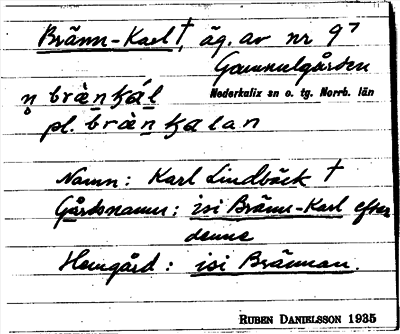 Bränn-Karl †, äg. av nr 97
Gammelgården
Nederkalix sn o. tg. Norrb. län
pl.
Namn: Karl Lindbäck †
Gårdsnamn: isi Bränn-Karl efter
denne
Hemgård: isi Brännan.
RUBEN DANIELSSON 1935